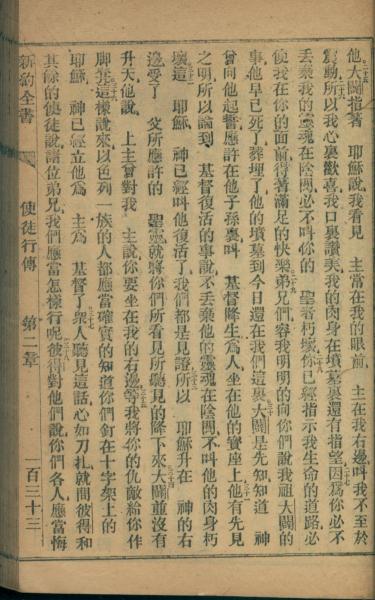 他大闢指著　耶穌說我看見　主常在我的眼前　主在我右邊叫我不至於
震動所以我心裏歡喜我口裏讚美我的肉身在墳墓裏還有指望因爲你必不
丟棄我的靈魂在陰間必不叫你的　聖者朽壞你已經指示我生命的道路必
使我在你的面前得著滿足的快樂弟兄們容我明明的向你們說我祖大闢的
事他早已死了葬埋了他的墳墓到今日還在我們這裏大闢是先知知道　神
曾向他起誓應許在他子孫裏叫　基督降生爲人坐在他的寶座上他有先見
之明所以論到　基督復活的事說不丟棄他的靈魂在陰間不叫他的肉身朽
壞這　耶穌　神已經叫他復活了我們都是見證所以　耶穌升在　神的右
邊受了　父所應許的　聖靈就將你們所看見所聽見的降下來大闢並沒有
升天他說　上主曾對我　主說你要坐在我的右邊等我將你的仇敵給你作
脚凳這樣說來以色列一族的人都應當確實的知道你們釘在十字架上的
耶穌　神已經立他爲　主爲　基督了衆人聽見這話心如刀扎就問彼得和
其餘的使徒說諸位弟兄我們應當怎樣行呢彼得對他們說你們各人應當悔
新約全書　使徒行傳　第二章　一百三十三